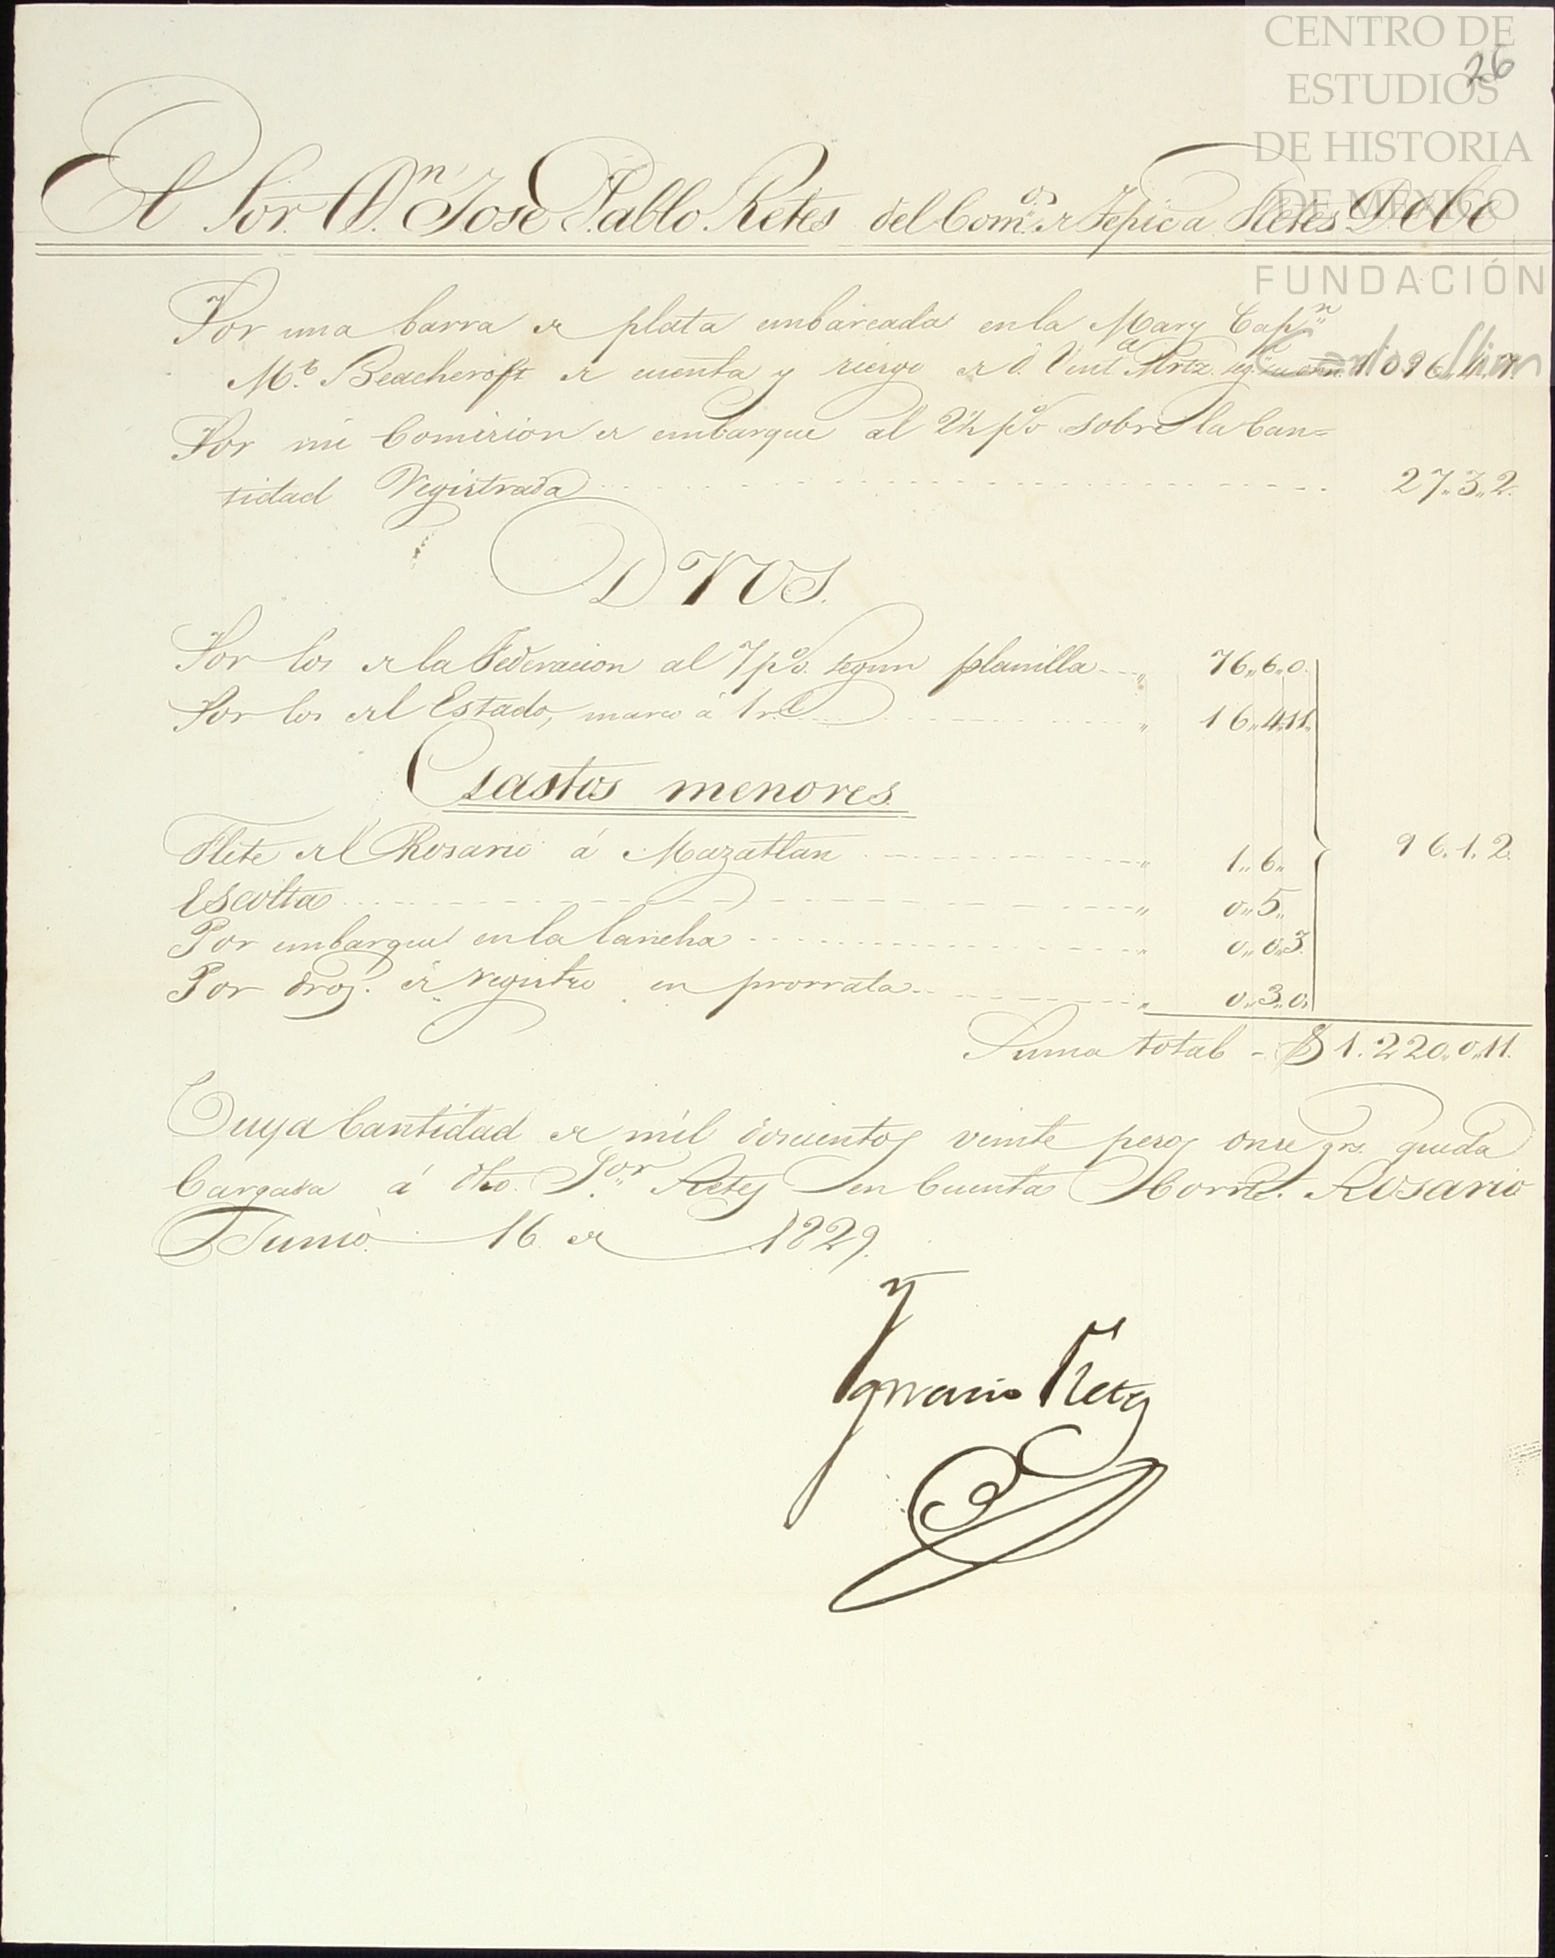 CENTRO DE
ESTUDIOS
DE HISTORIA
DE MÉXICO
FUNDACIÓN
Carlos Slim
26
El Sor. Dn. José Pablo Retes del Como. de Tepic a Retes Debe
Por una barra de plata embarcada en la Mary Capn.
Mr. Beachcroft de cuenta y riesgo de D. Venta. Mrtz. 1096,,4,,7.
Por mi Comision de embarque al 2½ p% sobre la Can=
tidad Registrada 27,,3,,2.
DROS.
Por los de la Federacion al 7 p%. segun planilla ,, 76,,6,,0.
Por los del Estado, marco á 1 rl. ,, 16,,4,,11.
Gastos menores.
Flete del Rosario á Mazatlan ,, 1,,6,, 96,,1,,2.
Escolta ,, 0,,5,,
Por embarque en la lancha ,, 0,,0,,3.
Por dros. de registro en prorrata ,, 0,,3,,0.
Suma total - $ 1.220,,0,,11.
Cuya Cantidad de mil doscientos veinte pesos onse grs. queda
Cargada á dho. Sor. Retes en Cuenta Corrte. Rosario
Junio 16 de 1829.
Ygnacio Retes